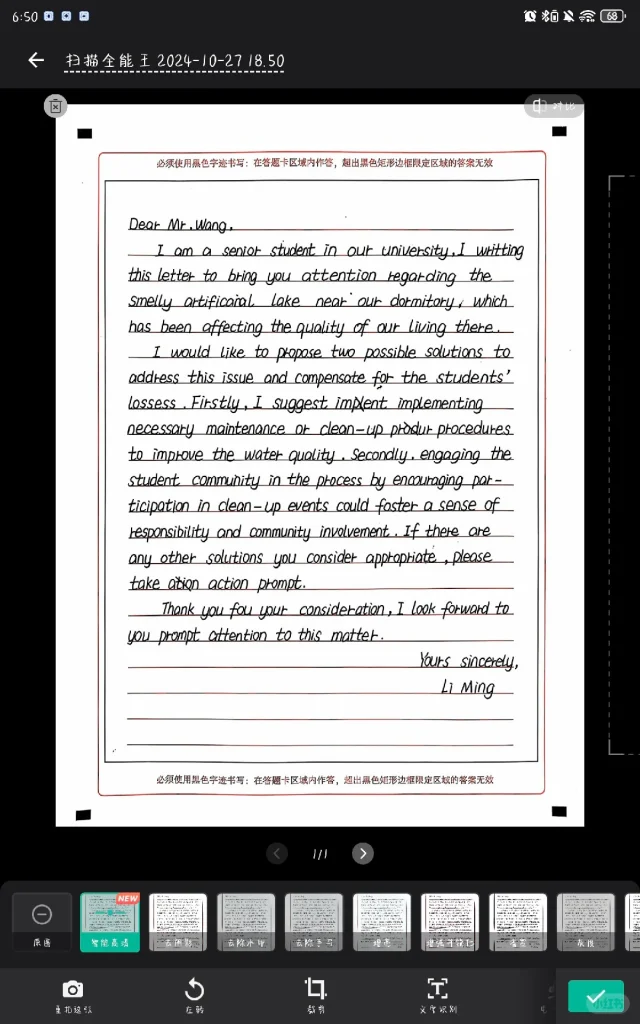 6:50
68
扫描全能王 2024-10-27 18.50
对比
必须使用黑色字迹书写：在答题卡区域内作答，超出黑色矩形边框限定区域的答案无效
Dear Mr.Wang,
I am a senior student in our university, I writting
this letter to bring you attention regarding the
smelly artificaial lake near our dormitory, which
has been affecting the quality of our living there.
I would like to propose two possible solutions to
address this issue and compensate for the students'
lossess. Firstly, I suggest implent implementing
necessary maintenance or clean-up produr procedures
to improve the water quality. Secondly, engaging the
student community in the process by encouraging par-
ticipation in clean-up events could foster a sense of
responsibility and community involvement. If there are
any other solutions you consider appropriate, please
take action prompt.
Thank you fou your consideration, I look forward to
you prompt attention to this matter.
Yours sincerely,
Li Ming
必须使用黑色字迹书写：在答题卡区域内作答，超出黑色矩形边框限定区域的答案无效
1/1
NEW
原图
智能高清
去阴影
去除水印
去除手写
增亮
增强并锐化
省墨
灰度
重拍这张
左转
裁剪
文字识别
小红书